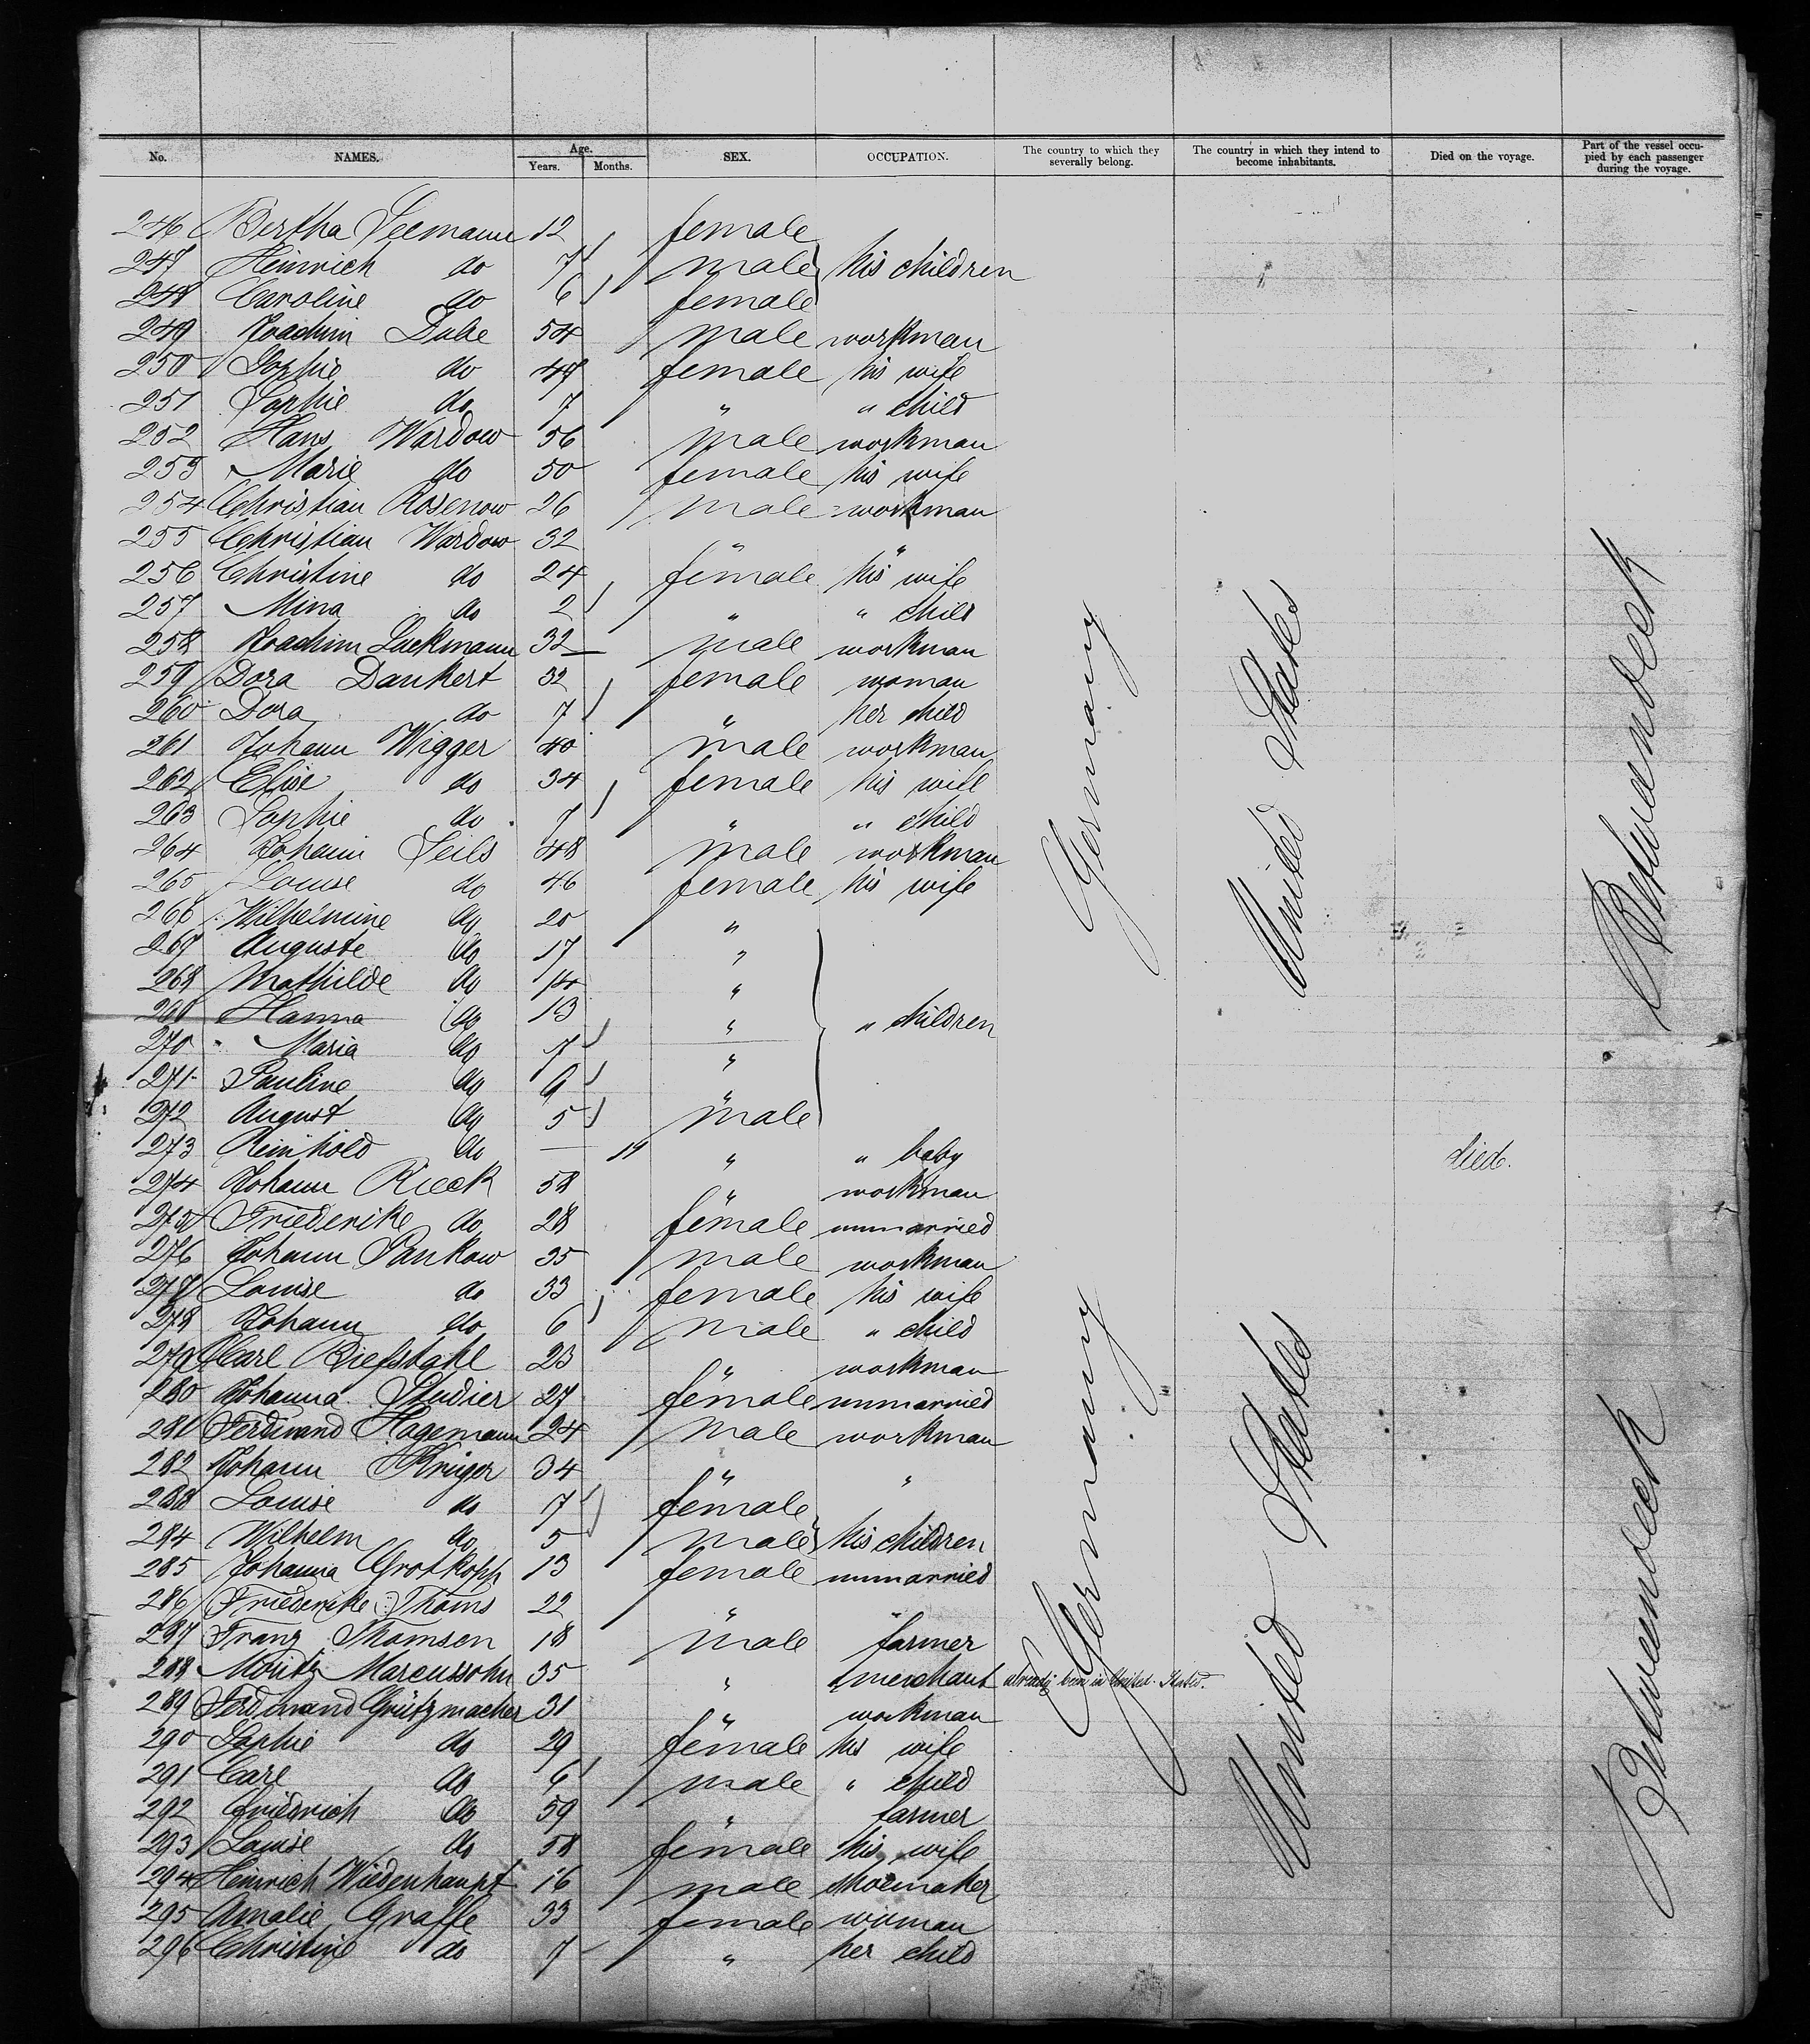 No. NAMES. Age. Years. Months. SEX. OCCUPATION. The country to which they severally belong. The country in which they intend to become inhabitants. Died on the voyage. Part of the vessel occupied by each passenger during the voyage.
246 Bertha Seemann 12 female
247 Heinrich do 7 male his children
248 Caroline do 6 female
249 Joachim Dube 54 male workman
250 Sophie do 47 female his wife
251 Sophie do 7 " " child
252 Hans Wardow 56 male workman
253 Marie do 50 female his wife
254 Christian Rosenow 26 male workman
255 Christian Wardow 32 " "
256 Christine do 24 female his wife
257 Mina do 2 " " child
258 Joachim Luckmann 32 male workman
259 Dora Dankert 32 female woman
260 Dora do 7 " her child
261 Johann Wigger 40 male workman
262 Elise do 34 female his wife
263 Sophie do 7 " " child
264 Johann Seils 48 male workman
265 Louise do 46 female his wife
266 Wilhelmine do 20 "
267 Auguste do 17 "
268 Mathilde do 14 "
269 Hanna do 13 " " children
270 Maria do 7 "
271 Pauline do 6 "
272 August do 5 male
273 Reinhold do — 11 " " baby died.
274 Johann Rieck 58 " workman
275 Friederike do 28 female unmarried
276 Johann Pankow 35 male workman
277 Louise do 33 female his wife
278 Johann do 6 male " child
279 Carl Riefstahl 23 " workman
280 Johanna Studier 27 female unmarried
281 Ferdinand Hagemann 24 male workman
282 Johann Krüger 34 " "
283 Louise do 7 female
284 Wilhelm do 5 male his children
285 Johanna Grotkopp 13 female unmarried
286 Friederike Thoms 22 " "
287 Franz Thomsen 18 male farmer
288 Moritz Marcussohn 35 " merchant already been in United States.
289 Ferdinand Grützmacher 31 " workman
290 Sophie do 29 female his wife
291 Carl do 6 male " child
292 Friedrich do 59 " farmer
293 Louise do 58 female his wife
294 Heinrich Wiedenhaupt 16 male shoemaker
295 Amalie Graffe 33 female woman
296 Christine do 7 " her child
Germany
United States
Betweendeck
Germany
United States
Betweendeck